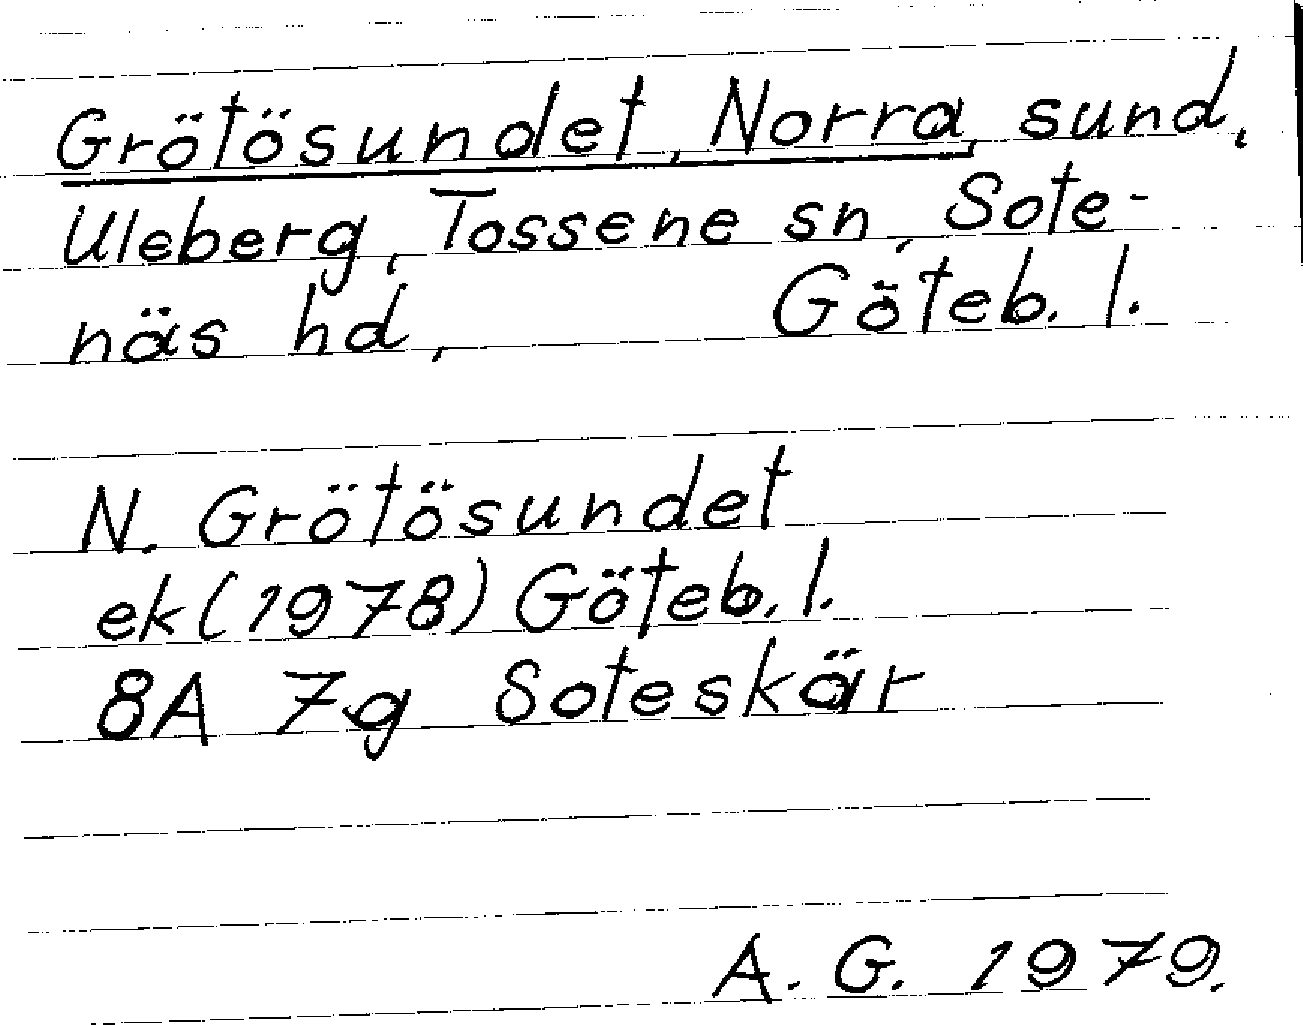 Grötösundet, Norra, sund,
Uleberg, Tossene sn, Sote-
näs hd, Göteb. l.
N. Grötösundet
ek (1978) Göteb. l.
8A 7g Soteskär
A. G. 1979.